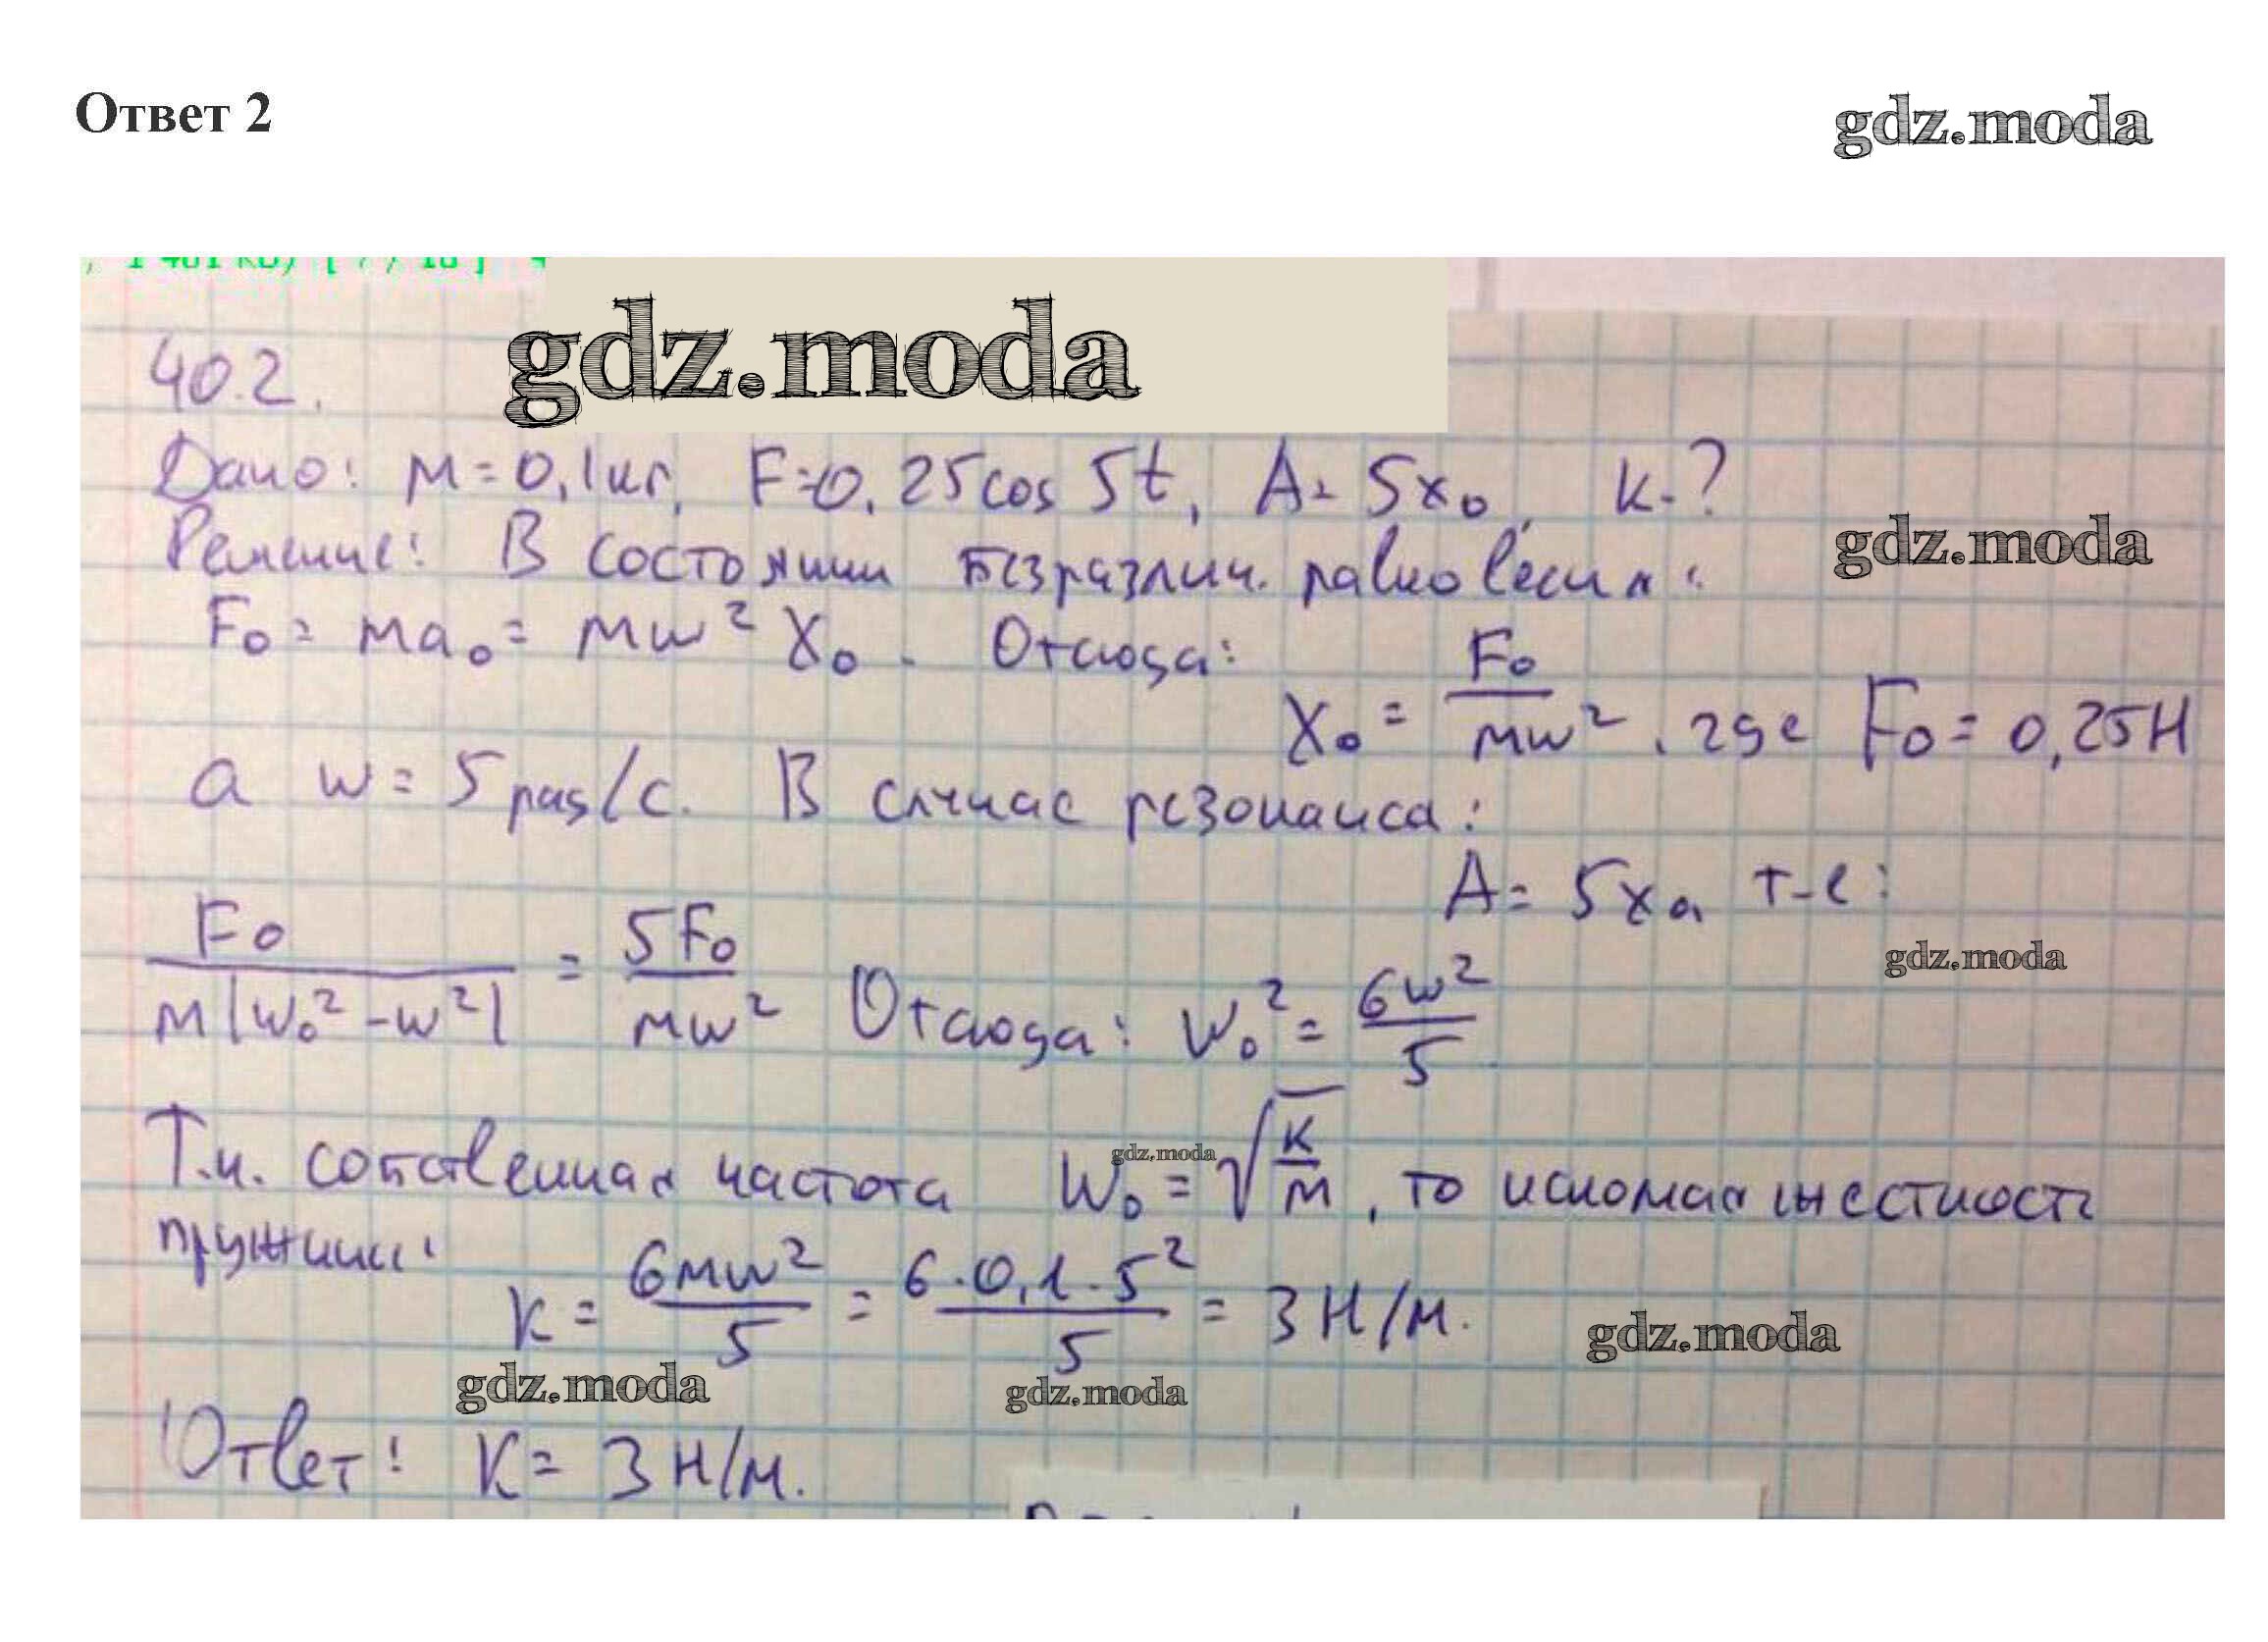 Ответ 2
gdz.moda
gdz.moda
40.2.
Дано: m = 0,1 кг, F = 0,25 cos 5t, A = 5x₀, k - ?
gdz.moda
Решение: В состоянии безразлич. равновесия:
F₀ = ma₀ = mw² X₀. Отсюда:
X₀ = F₀/mw², где F₀ = 0,25Н
а w = 5 рад/с. В случае резонанса:
A = 5x₀, т-е:
gdz.moda
F₀/m|w₀² - w²| = 5F₀/mw² Отсюда: w₀² = 6w²/5
Т.к. собственная частота w₀ = √k/m, то искомая жесткость
gdz.moda
пружины:
k = 6mw²/5 = 6·0,1·5²/5 = 3 Н/м.
gdz.moda
gdz.moda
gdz.moda
Ответ: K = 3 Н/м.